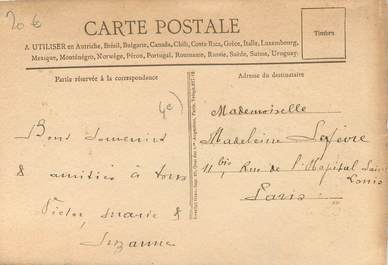 20 €
CARTE POSTALE
A UTILISER en Autriche, Brésil, Bulgarie, Canada, Chili, Costa-Rica, Grèce, Italie, Luxembourg,
Mexique, Monténégro, Norwège, Péron, Portugal, Roumanie, Russie, Suède, Suisse, Uruguay.
Timbre
Partie réservée à la correspondance
Adresse du destinataire
Bons souvenirs
& amitiés à tous
Victor, Marie &
Suzanne
Mademoiselle
Madeleine Lefèvre
11 bis, Rue de l'Hôpital Saint
Louis
Paris